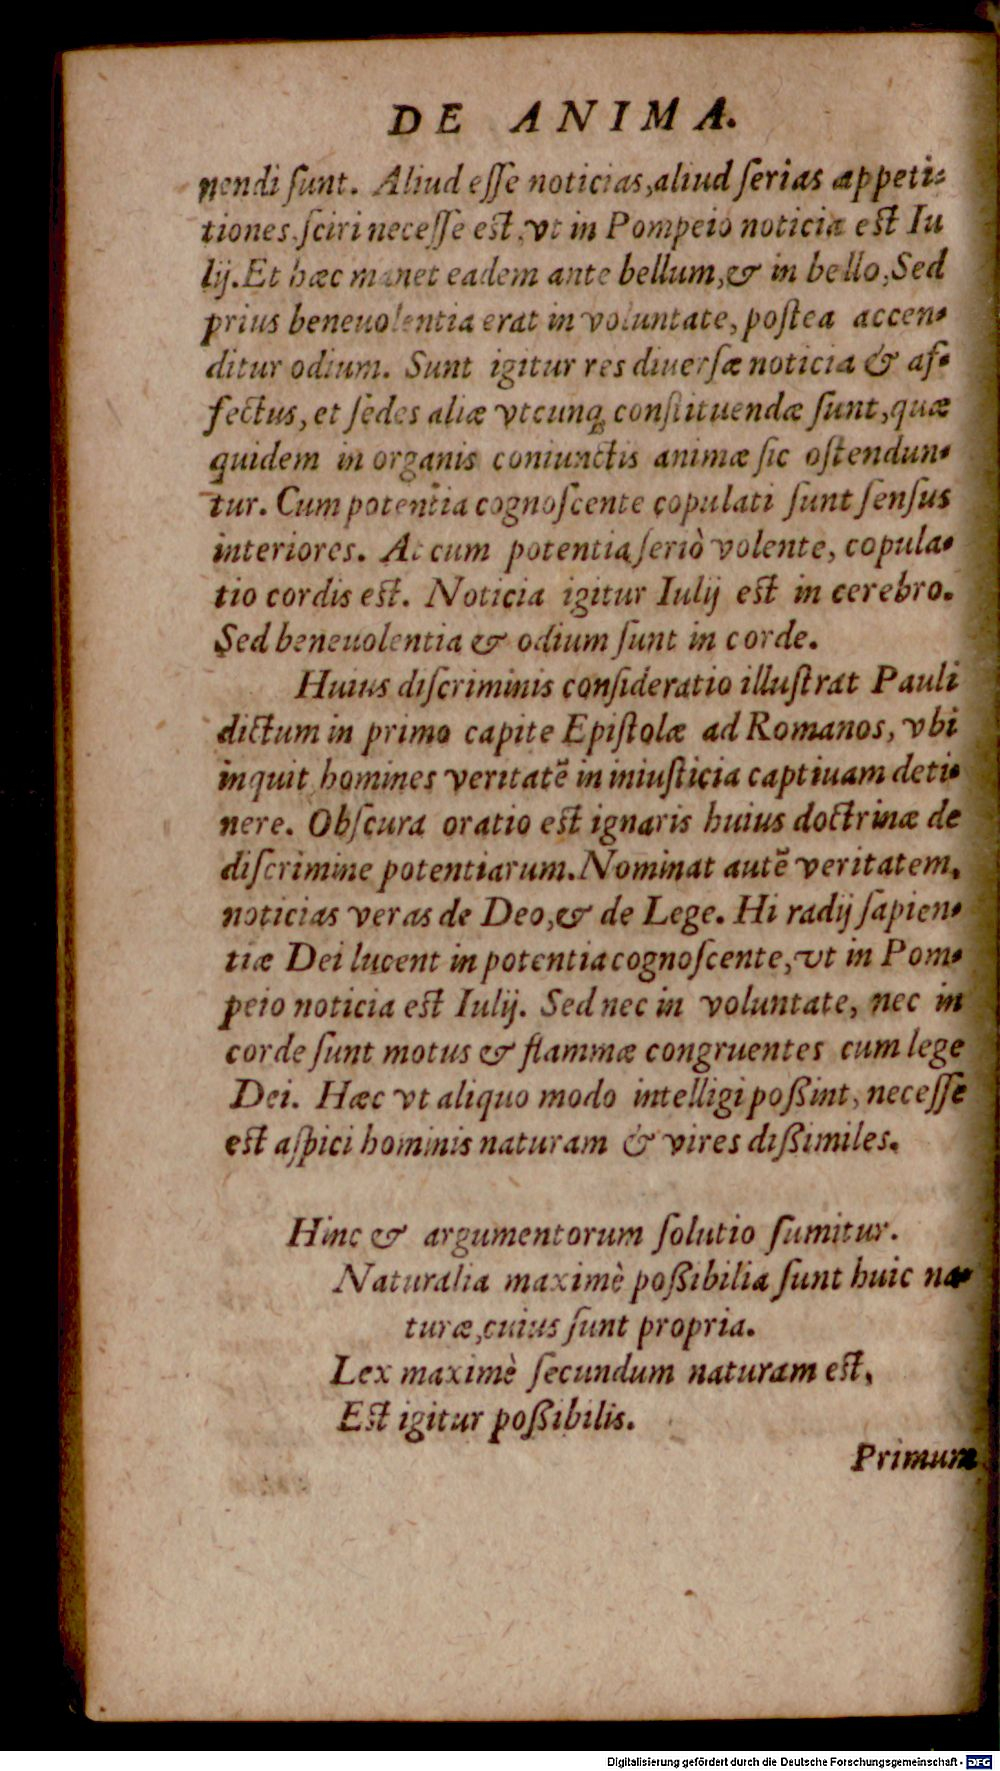 DE ANIMA.
nendi ſunt. Aliud eſſe noticias, aliud ſerias appeti-
tiones, ſciri neceſſe eſt, vt in Pompeio noticia eſt Iu
lij. Et hæc manet eadem ante bellum, & in bello, Sed
prius beneuolentia erat in voluntate, poſtea accen-
ditur odium. Sunt igitur res diuerſæ noticia & af-
fectus, et ſedes aliæ vtcunq; conſtituendæ ſunt, quæ
quidem in organis coniunctis animæ ſic oſtendun-
tur. Cum potentia cognoſcente copulati ſunt ſenſus
interiores. At cum potentia ſeriò volente, copula-
tio cordis eſt. Noticia igitur Iulij eſt in cerebro.
Sed beneuolentia & odium ſunt in corde.
Huius diſcriminis conſideratio illuſtrat Pauli
dictum in primo capite Epiſtolæ ad Romanos, vbi
inquit homines veritatẽ in iniuſticia captiuam deti-
nere. Obſcura oratio eſt ignaris huius doctrinæ de
diſcrimine potentiarum. Nominat autẽ veritatem,
noticias veras de Deo, & de Lege. Hi radij ſapien-
tiæ Dei lucent in potentia cognoſcente, vt in Pom-
peio noticia eſt Iulij. Sed nec in voluntate, nec in
corde ſunt motus & flammæ congruentes cum lege
Dei. Hæc vt aliquo modo intelligi poßint, neceſſe
eſt aſpici hominis naturam & vires dißimiles.
Hinc & argumentorum ſolutio ſumitur.
Naturalia maximè poßibilia ſunt huic na-
turæ, cuius ſunt propria.
Lex maximè ſecundum naturam eſt,
Eſt igitur poßibilis.
Primum
Digitalisierung gefördert durch die Deutsche Forschungsgemeinschaft - DFG